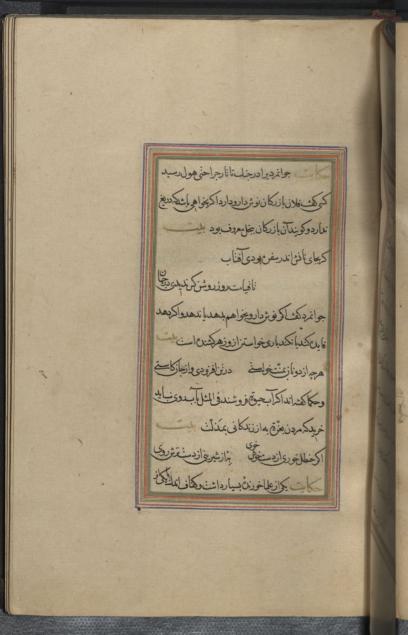 حکایت جوانمردیرا در جنك تاتار جراحتی هول رسید
کسی کفت فلان بازرکان نوش دارو دارد اکر بخواهی باشد که دریغ
ندارد و کویند آن بازرکان ببخل معروف بود بیت
کر بجای نانش اندر سفره بودی آفتاب
تا قیامت روز روشن کس ندیدی در جهان
جوانمرد کفت اکر نوش دارو بخواهم بدهد یا ندهد و اکر دهد
فایده کند یا نکند باری خواستن از و زهر کشنده است بیت
هر چه از دونان بمنت خواستی در تن افزودی و از جان کاستی
و حکما کفته اند اکر آب حیوة فروشند فی المثل بآب روی نباید
خرید که مردن بعزت به از زندکانی بمذلت بیت
اکر حنظل خوری از دست خوش خوی به از شیرینی از دست ترش روی
حکایت یکی از علما خورنده بسیار داشت و کفاف اندك